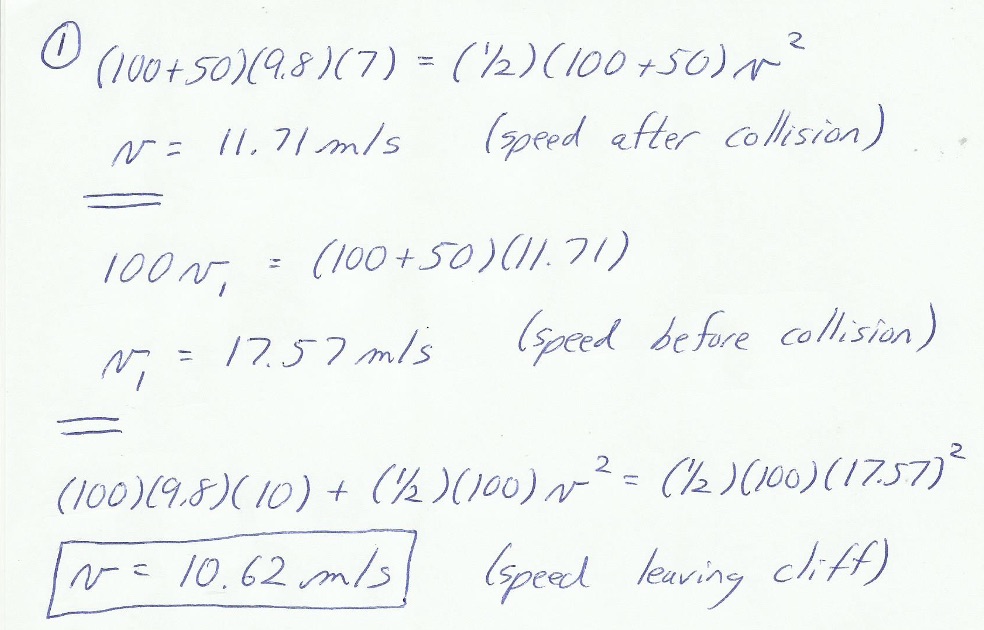 ① (100+50)(9.8)(7) = (1/2)(100+50)v²
v = 11.71 m/s (speed after collision)
100v₁ = (100+50)(11.71)
v₁ = 17.57 m/s (speed before collision)
(100)(9.8)(10) + (1/2)(100)v² = (1/2)(100)(17.57)²
v = 10.62 m/s (speed leaving cliff)